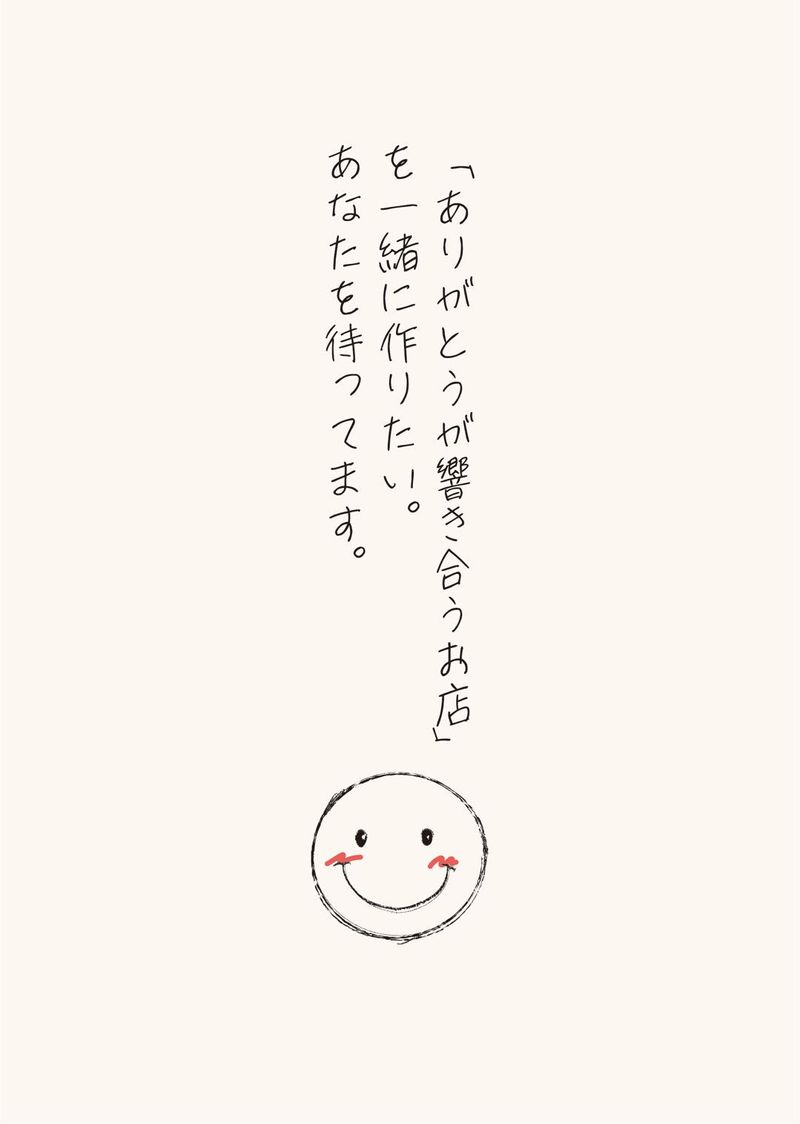 「ありがとうが響き合うお店」
を一緒に作りたい。
あなたを待ってます。